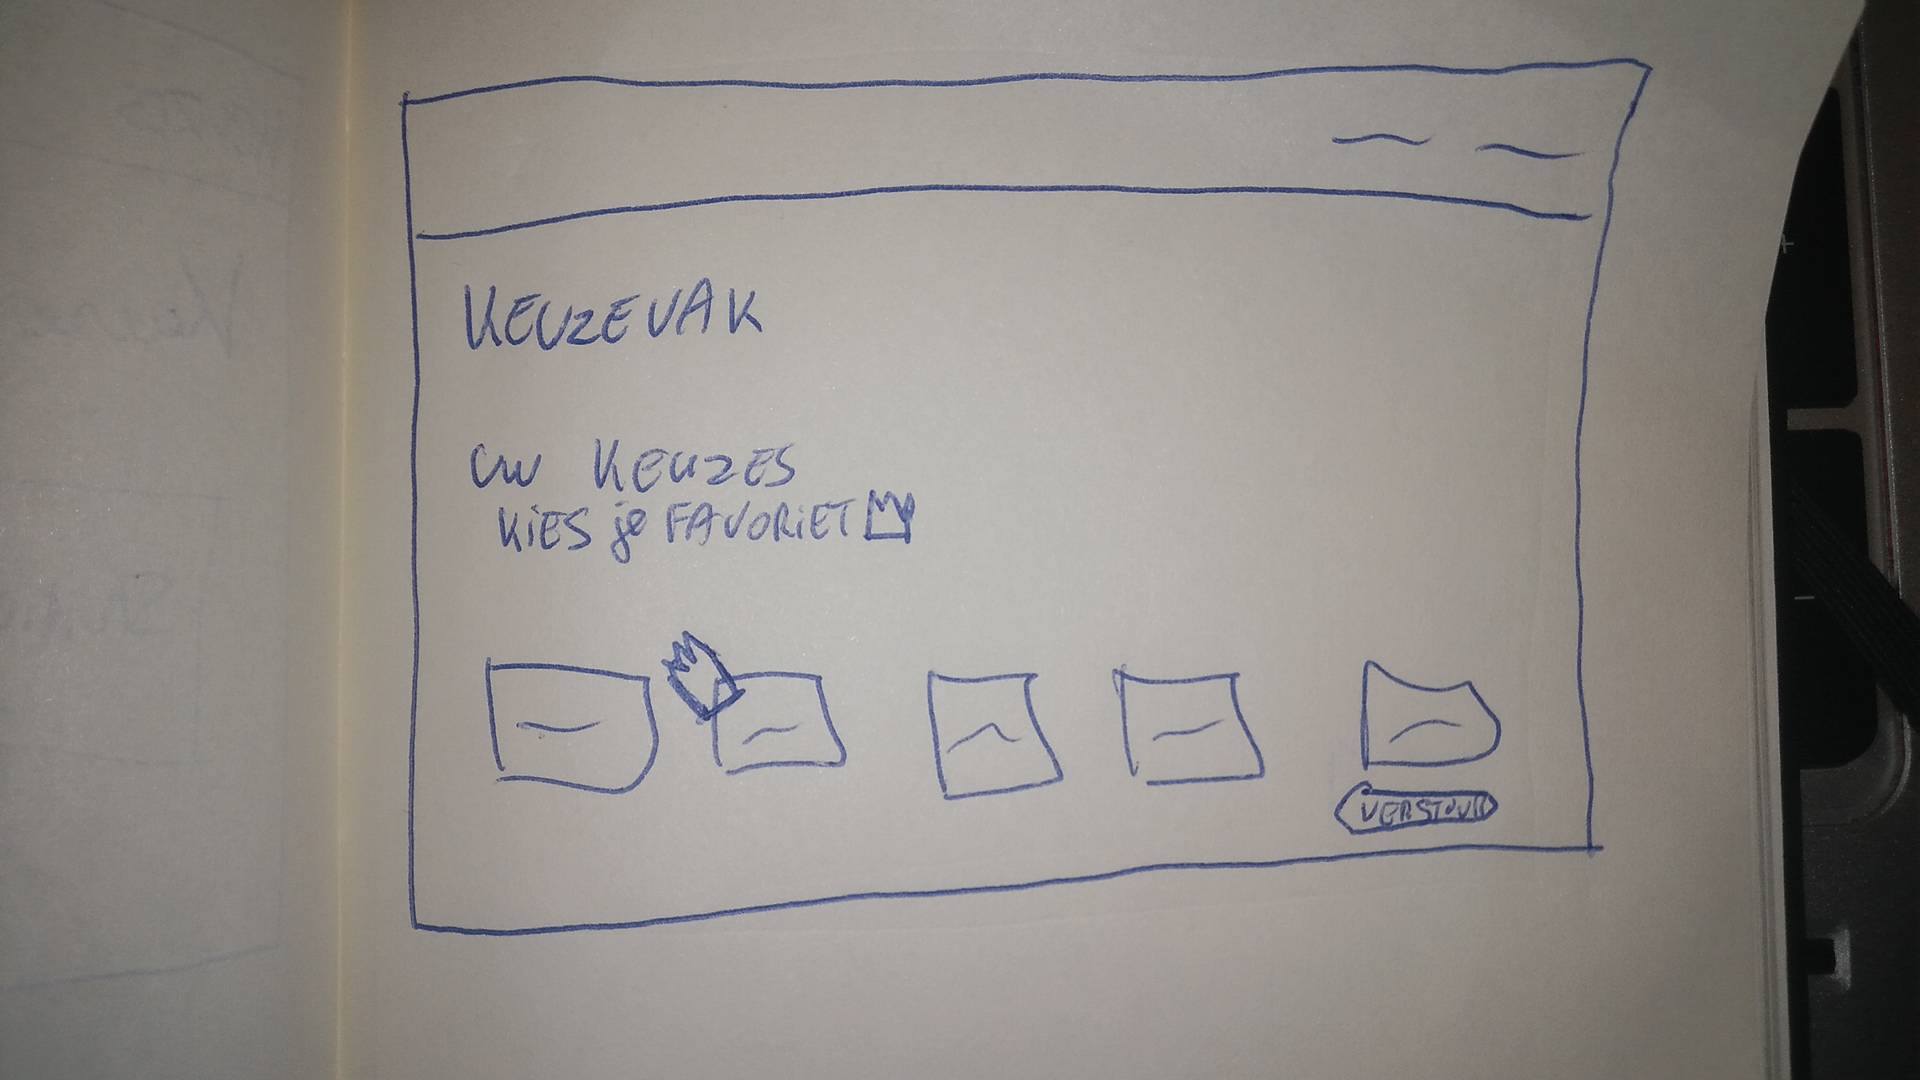 KEUZEVAK
uw KEUZES
KiES je FAVORiET
VERSTUUR